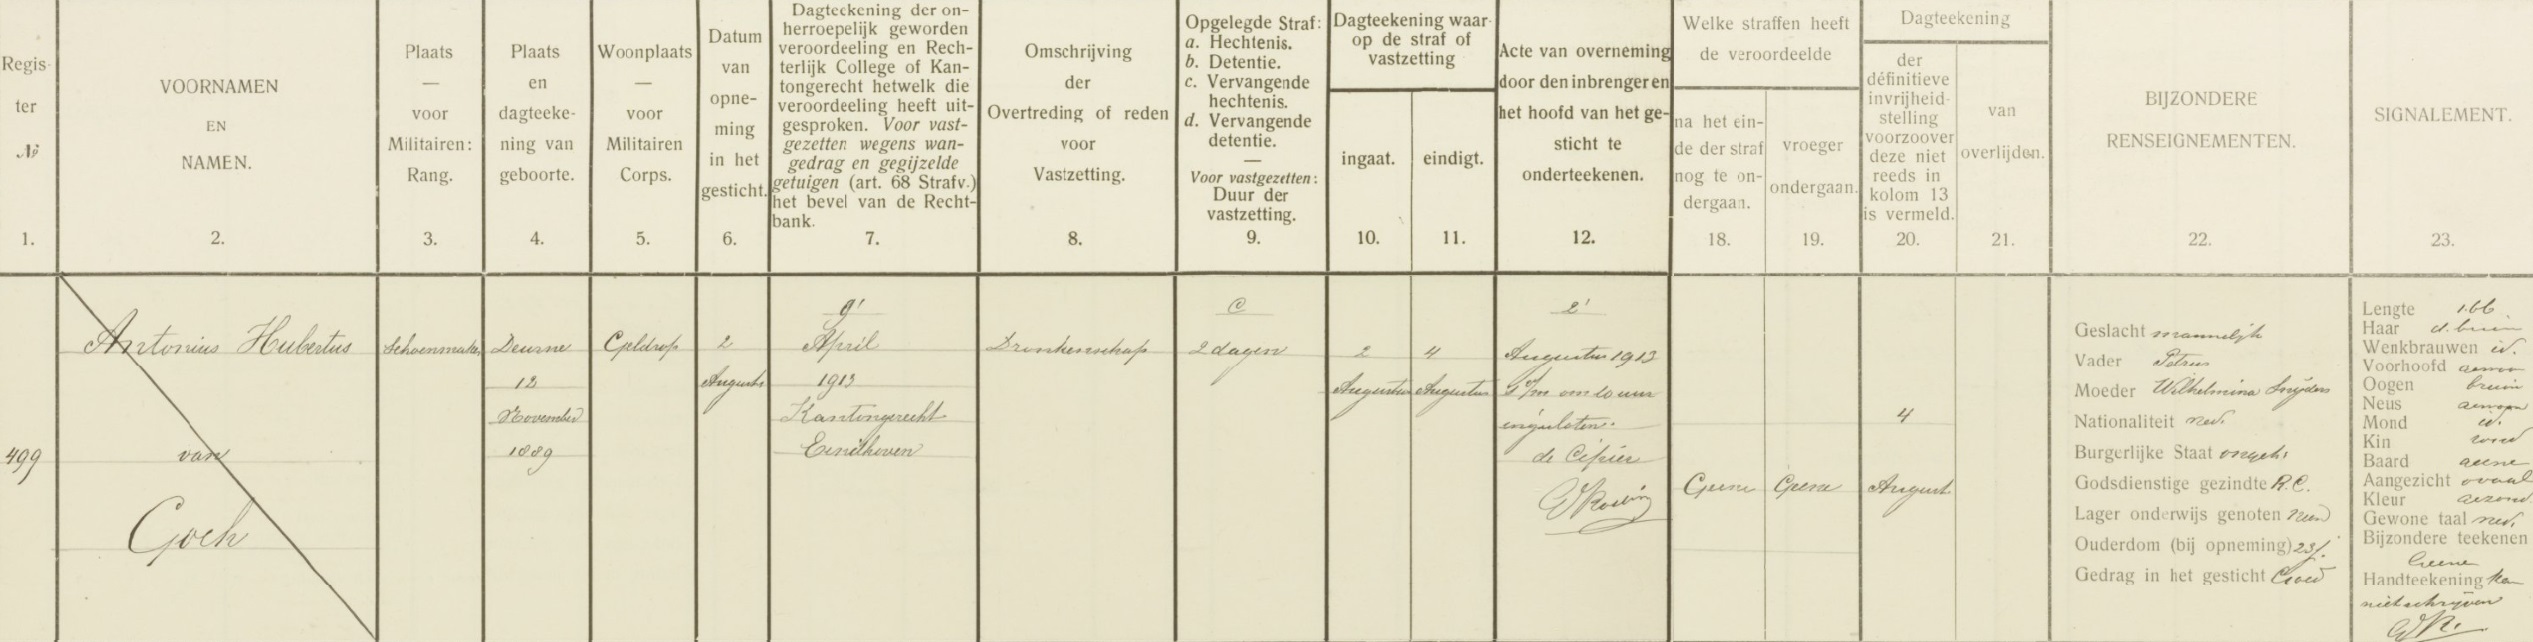 Regis-
ter
№
1.
VOORNAMEN
EN
NAMEN.
2.
Plaats
—
voor
Militairen:
Rang.
3.
Plaats
en
dagteeke-
ning van
geboorte.
4.
Woonplaats
—
voor
Militairen
Corps.
5.
Datum
van
opne-
ming
in het
gesticht.
6.
Dagteekening der on-
herroepelijk geworden
veroordeeling en Rech-
terlijk College of Kan-
tongerecht hetwelk die
veroordeeling heeft uit-
gesproken. Voor vast-
gezetten wegens wan-
gedrag en gegijzelde
getuigen (art. 68 Strafv.)
het bevel van de Recht-
bank.
7.
Omschrijving
der
Overtreding of reden
voor
Vastzetting.
8.
Opgelegde Straf:
a. Hechtenis.
b. Detentie.
c. Vervangende
hechtenis.
d. Vervangende
detentie.
—
Voor vastgezetten:
Duur der
vastzetting.
9.
Dagteekening waar-
op de straf of
vastzetting
ingaat.
10.
eindigt.
11.
Acte van overneming
door den inbrenger en
het hoofd van het ge-
sticht te
onderteekenen.
12.
Welke straffen heeft
de veroordeelde
na het ein-
de der straf
nog te on-
dergaan.
18.
vroeger
ondergaan.
19.
Dagteekening
der
définitieve
invrijheid-
stelling
voorzoover
deze niet
reeds in
kolom 13
is vermeld.
20.
van
overlijden.
21.
BIJZONDERE
RENSEIGNEMENTEN.
22.
SIGNALEMENT.
23.
499
Antonius Hubertus
van
Goch
Schoenmaker
Deurne
12
November
1889
Geldrop
2
Augustus
9'
April
1913
Kantongerecht
Eindhoven
Dronkenschap
C
2 dagen
2
Augustus
4
Augustus
2'
Augustus 1913
v/m om 10 uur
ingesloten.
de Cipier
Geene
Geene
4
August
Geslacht mannelijk
Vader Petrus
Moeder Wilhelmina Snijders
Nationaliteit ned.
Burgerlijke Staat ongeh.
Godsdienstige gezindte R.C.
Lager onderwijs genoten neen
Ouderdom (bij opneming) 23 j.
Gedrag in het gesticht Goed
Lengte 1.66
Haar d. bruin
Wenkbrauwen id.
Voorhoofd gewoon
Oogen bruin
Neus gewoon
Mond id.
Kin rond
Baard geene
Aangezicht ovaal
Kleur gezond
Gewone taal ned.
Bijzondere teekenen
Geene
Handteekening kan
niet schrijven